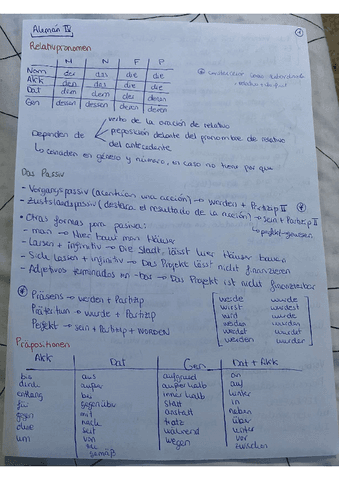 Alemán IV
Relativpronomen
M N F P
Nom der das die die
Akk den das die die
Dat dem dem der den
Gen dessen dessen deren deren
Dependen de
verbo de la oración de relativo
preposición delante del pronombre de relativo
del antecedente
concuerdan en género y número, el caso no tiene por qué
Das Passiv
- Vorgangspassiv (acentúan una acción) → werden + Partizip II
- Zustandspassiv (destaca el resultado de la acción) → sein + Partizip II
→ perfekt → gewesen
• Otras formas para pasiva:
- man → Hier baut man Häuser
- Lassen + infinitiv → Die Stadt lässt hier Häuser bauen
- Sich lassen + infinitiv → Das Projekt lässt sich nicht finanzieren
- Adjetivos terminados en -bar → Das Projekt ist nicht finanzierbar
Präsens → werden + Partizip
Präteritum → wurde + Partizip
Perfekt → sein + Partizip + WORDEN
werde wurde
wirst wurdest
wird wurde
werden wurden
werdet wurdet
werden wurden
Präpositionen
Akk Dat Gen Dat + Akk
bis aus aufgrund an
durch außer außerhalb auf
entlang bei innerhalb hinter
für gegenüber statt in
gegen mit anstatt neben
ohne nach trotz über
um seit während unter
von wegen vor
zu zwischen
gemäß